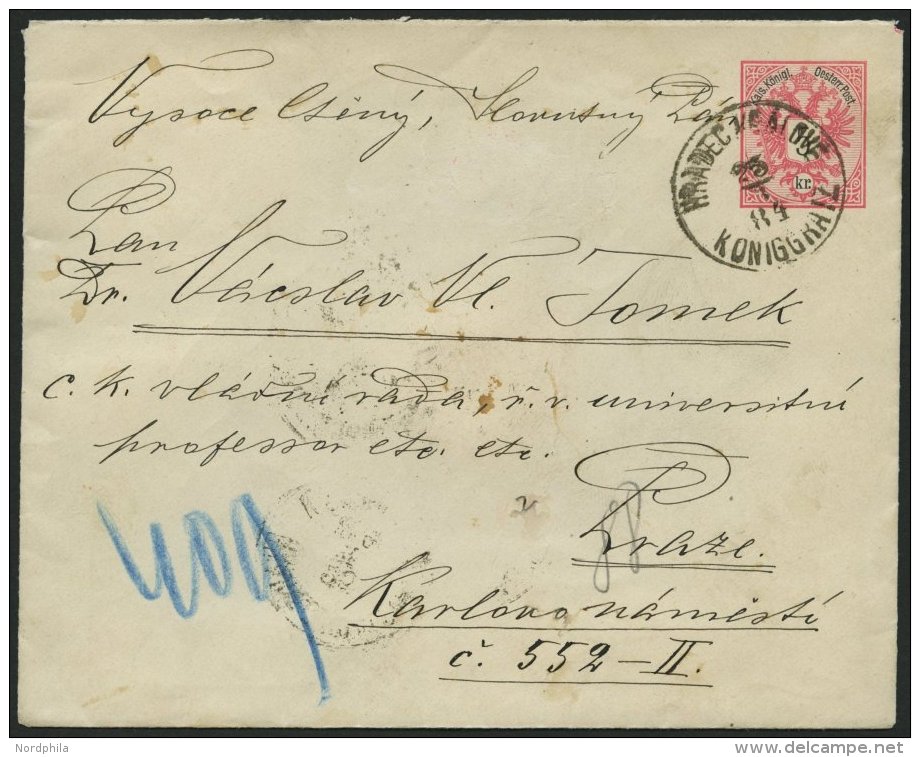 Kais. Königl. Oesterr. Post.
5
kr.
HRADEC KRÁLOVÉ
84
KÖNIGGRÄTZ
Vysoce Ctěný, Slovutný Pán
Pan
Dr. Václav Vl. Tomek
c. k. vládní rada, ř. v. universitní
professor etc. etc.
Praze.
Karlovo náměstí
č. 552 – II.
88
Nordphila
www.delcampe.net